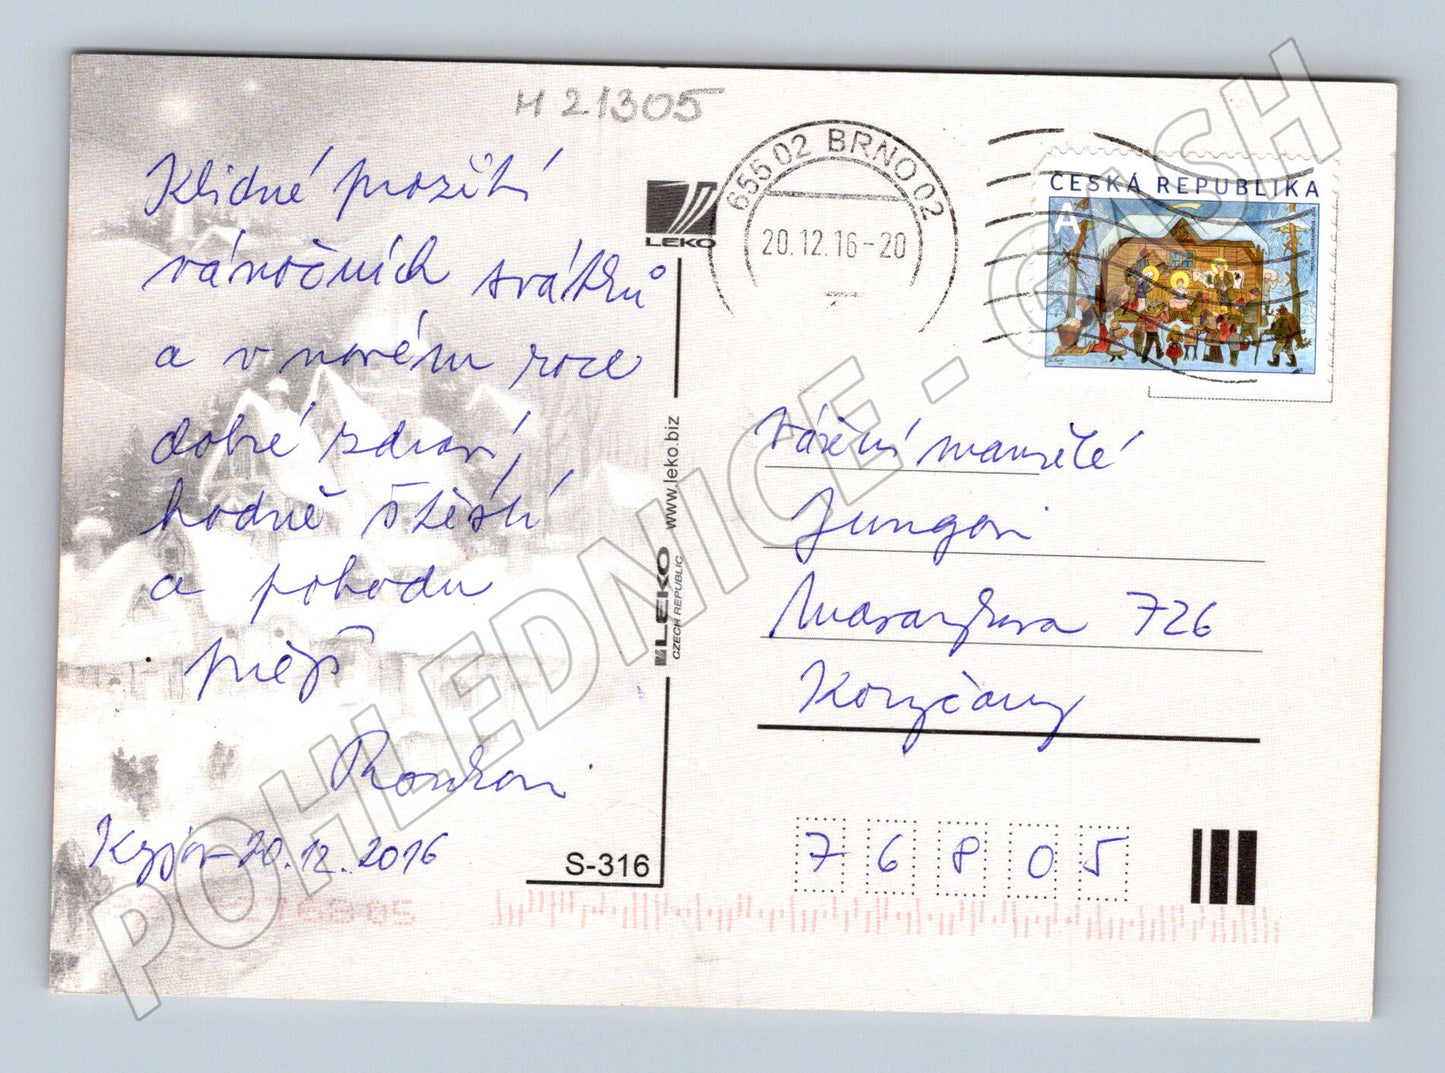 H 21305
Klidné prožití
vánočních svátků
a v novém roce
dobré zdraví,
hodně štěstí
a pohodu
přejí
Kyjov 20.12.2016
LEKO
www.leko.biz
LEKO
CZECH REPUBLIC
S-316
656 02 BRNO 02
20.12.16-20
ČESKÁ REPUBLIKA
A
Vážení manželé
Jungovi
Masarykova 726
Koryčany
76805
POHLEDNICE - CASH